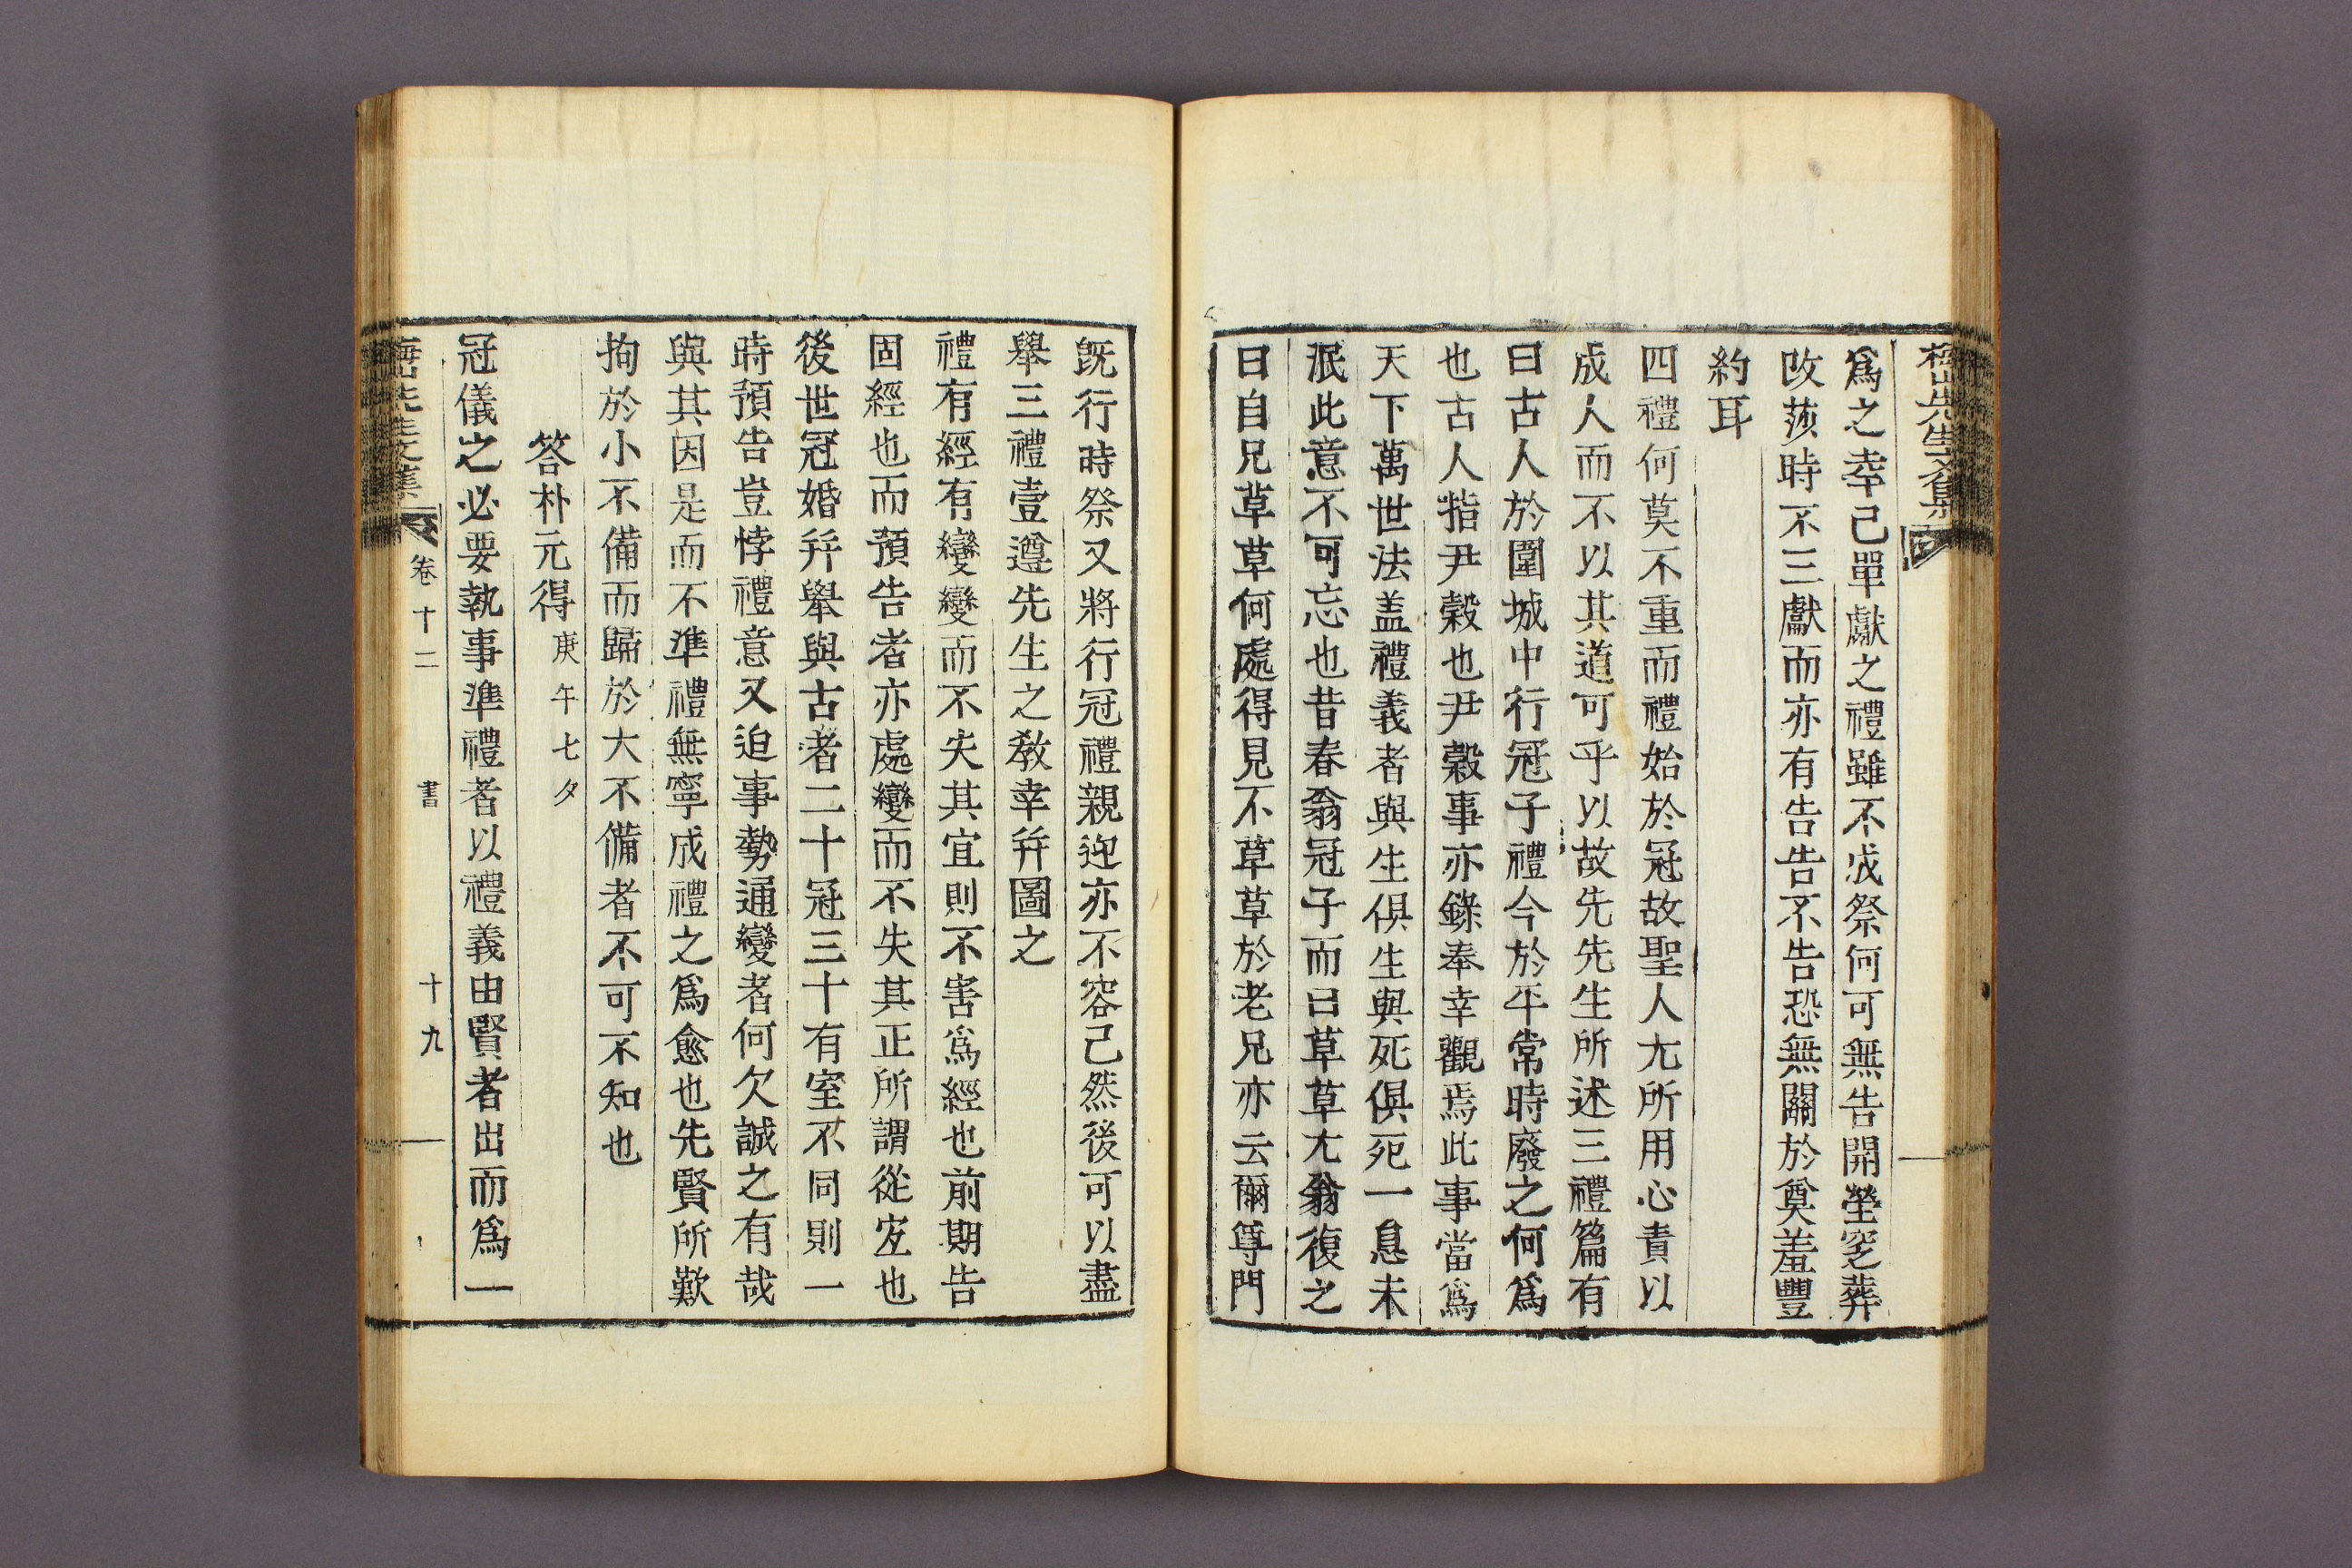 梅山先生文集
爲之幸已單獻之禮雖不成祭何可無告開塋窆葬
改莎時不三獻而亦有告告不告恐無關於奠羞豐
約耳
四禮何莫不重而禮始於冠故聖人尤所用心責以
成人而不以其道可乎以故先先生所述三禮篇有
曰古人於圍城中行冠子禮今於平常時廢之何爲
也古人指尹穀也尹穀事亦錄奉幸觀焉此事當爲
天下萬世法盖禮義者與生俱生與死俱死一息未
泯此意不可忘也昔春翁冠子而曰草草尤翁復之
曰自兄草草何處得見不草草於老兄亦云爾尊門
旣行時祭又將行冠禮親迎亦不容已然後可以盡
舉三禮壹遵先生之敎幸幷圖之
禮有經有變變而不失其宜則不害爲經也前期告
固經也而預告者亦處變而不失其正所謂從宜也
後世冠婚幷舉與古者二十冠三十有室不同則一
時預告豈悖禮意又迫事勢通變者何欠誠之有哉
與其因是而不準禮無寧成禮之爲愈也先賢所歎
拘於小不備而歸於大不備者不可不知也
答朴元得 庚午七夕
冠儀之必要執事準禮者以禮義由賢者出而爲一
梅山先生文集 卷十二 書 十九